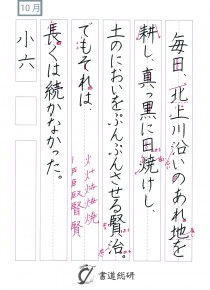 10月
毎日、北上川沿いのあれ地を
耕し、真っ黒に日焼けし、
土のにおいをぷんぷんさせる賢治。
でもそれは、
長くは続かなかった。
小六
書道総研